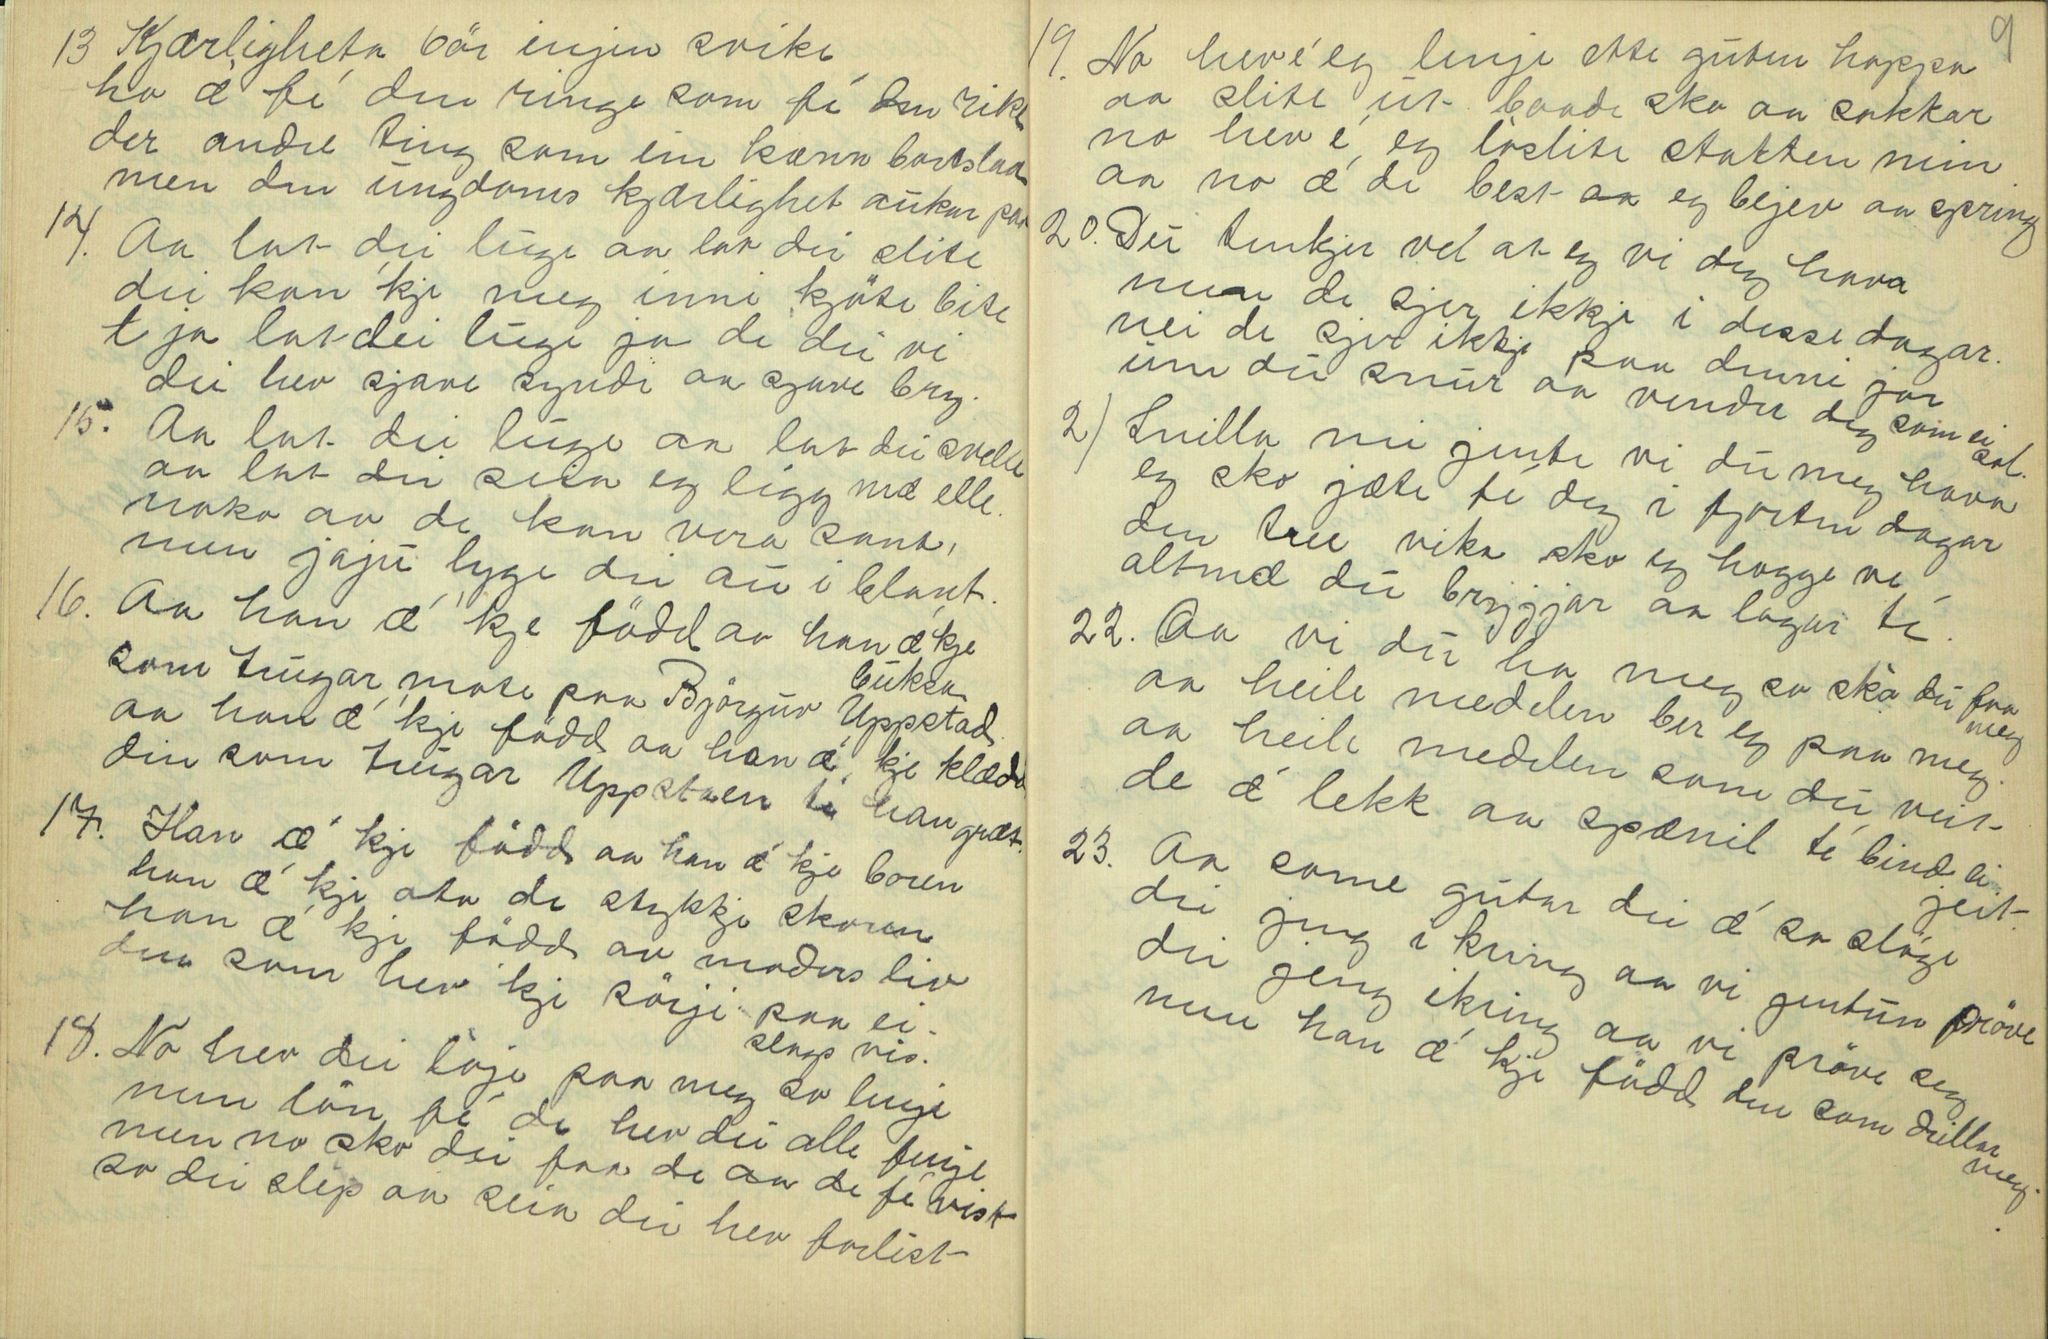 13 Kjærligheta bör injen svike
ho æ' fé den ringe som fé den rike
der andre ting som ein kann bortslaa
men den ungdoms kjærlighet aukar paa
14. Aa lat dei ljuge aa lat dei slite
dei kan 'kje meg inni kjöte bite
t ja lat dei ljuge ja de dei vi
dei hev sjave syndi aa sjave bry.
15. Aa lat dei ljuge aa lat dei svelle
aa lat dei seia eg ligg mæ elle.
noko av de kan vera sant,
men jaju lyge dei au i blant.
16. Aa han æ' 'kje född aa han æ' kje
buksa
som trugar mose paa Björguv Uppstad
aa han æ' 'kje född aa han æ' kje klædd
din som trugar Uppstaen té han græt.
17. Han æ' kje född aa han æ' kje boren
han æ' kje ata de stykkje skoren
han æ' kje född av moders liv
den som hev 'kje sörji paa ei
slags vis.
18. No hev dei löje paa meg so lenje
men lön fé de hev dei alle fenje
men no sko dei faa de aa de fé visst
so dei slep aa seia dei hev forlist
9
19. No hev é eg lenje ette guten hoppa
aa slite ut baade sko aa sokkar
no hev é eg löslite stakken min
aa no æ' de best aa eg bejev aa spring
20. Du tenkjer vel at eg vi deg hava
men de sjer ikkje i desse dagar.
nei de sjer ikkje paa denni jor
um du snur aa vender deg som ei
sol.
21 Snilla mi jente vi du meg hava
eg sko jæte té deg i fjorten dagar
den tree vika sko eg hogge ve
altmæ du bryggjar aa lagar té.
22. Aa vi du ha meg so ska du faa
meg
aa heile medelen ber eg paa meg.
aa heile medelen som du veit
de æ' lekk aa spænil té bind ei
jeit.
23. Aa some gutar dei æ' so slöge
dei jeng i kring aa vi jentun pröve
dei jeng ikring aa vi pröve seg
men han æ' kje född den som drillar
meg.